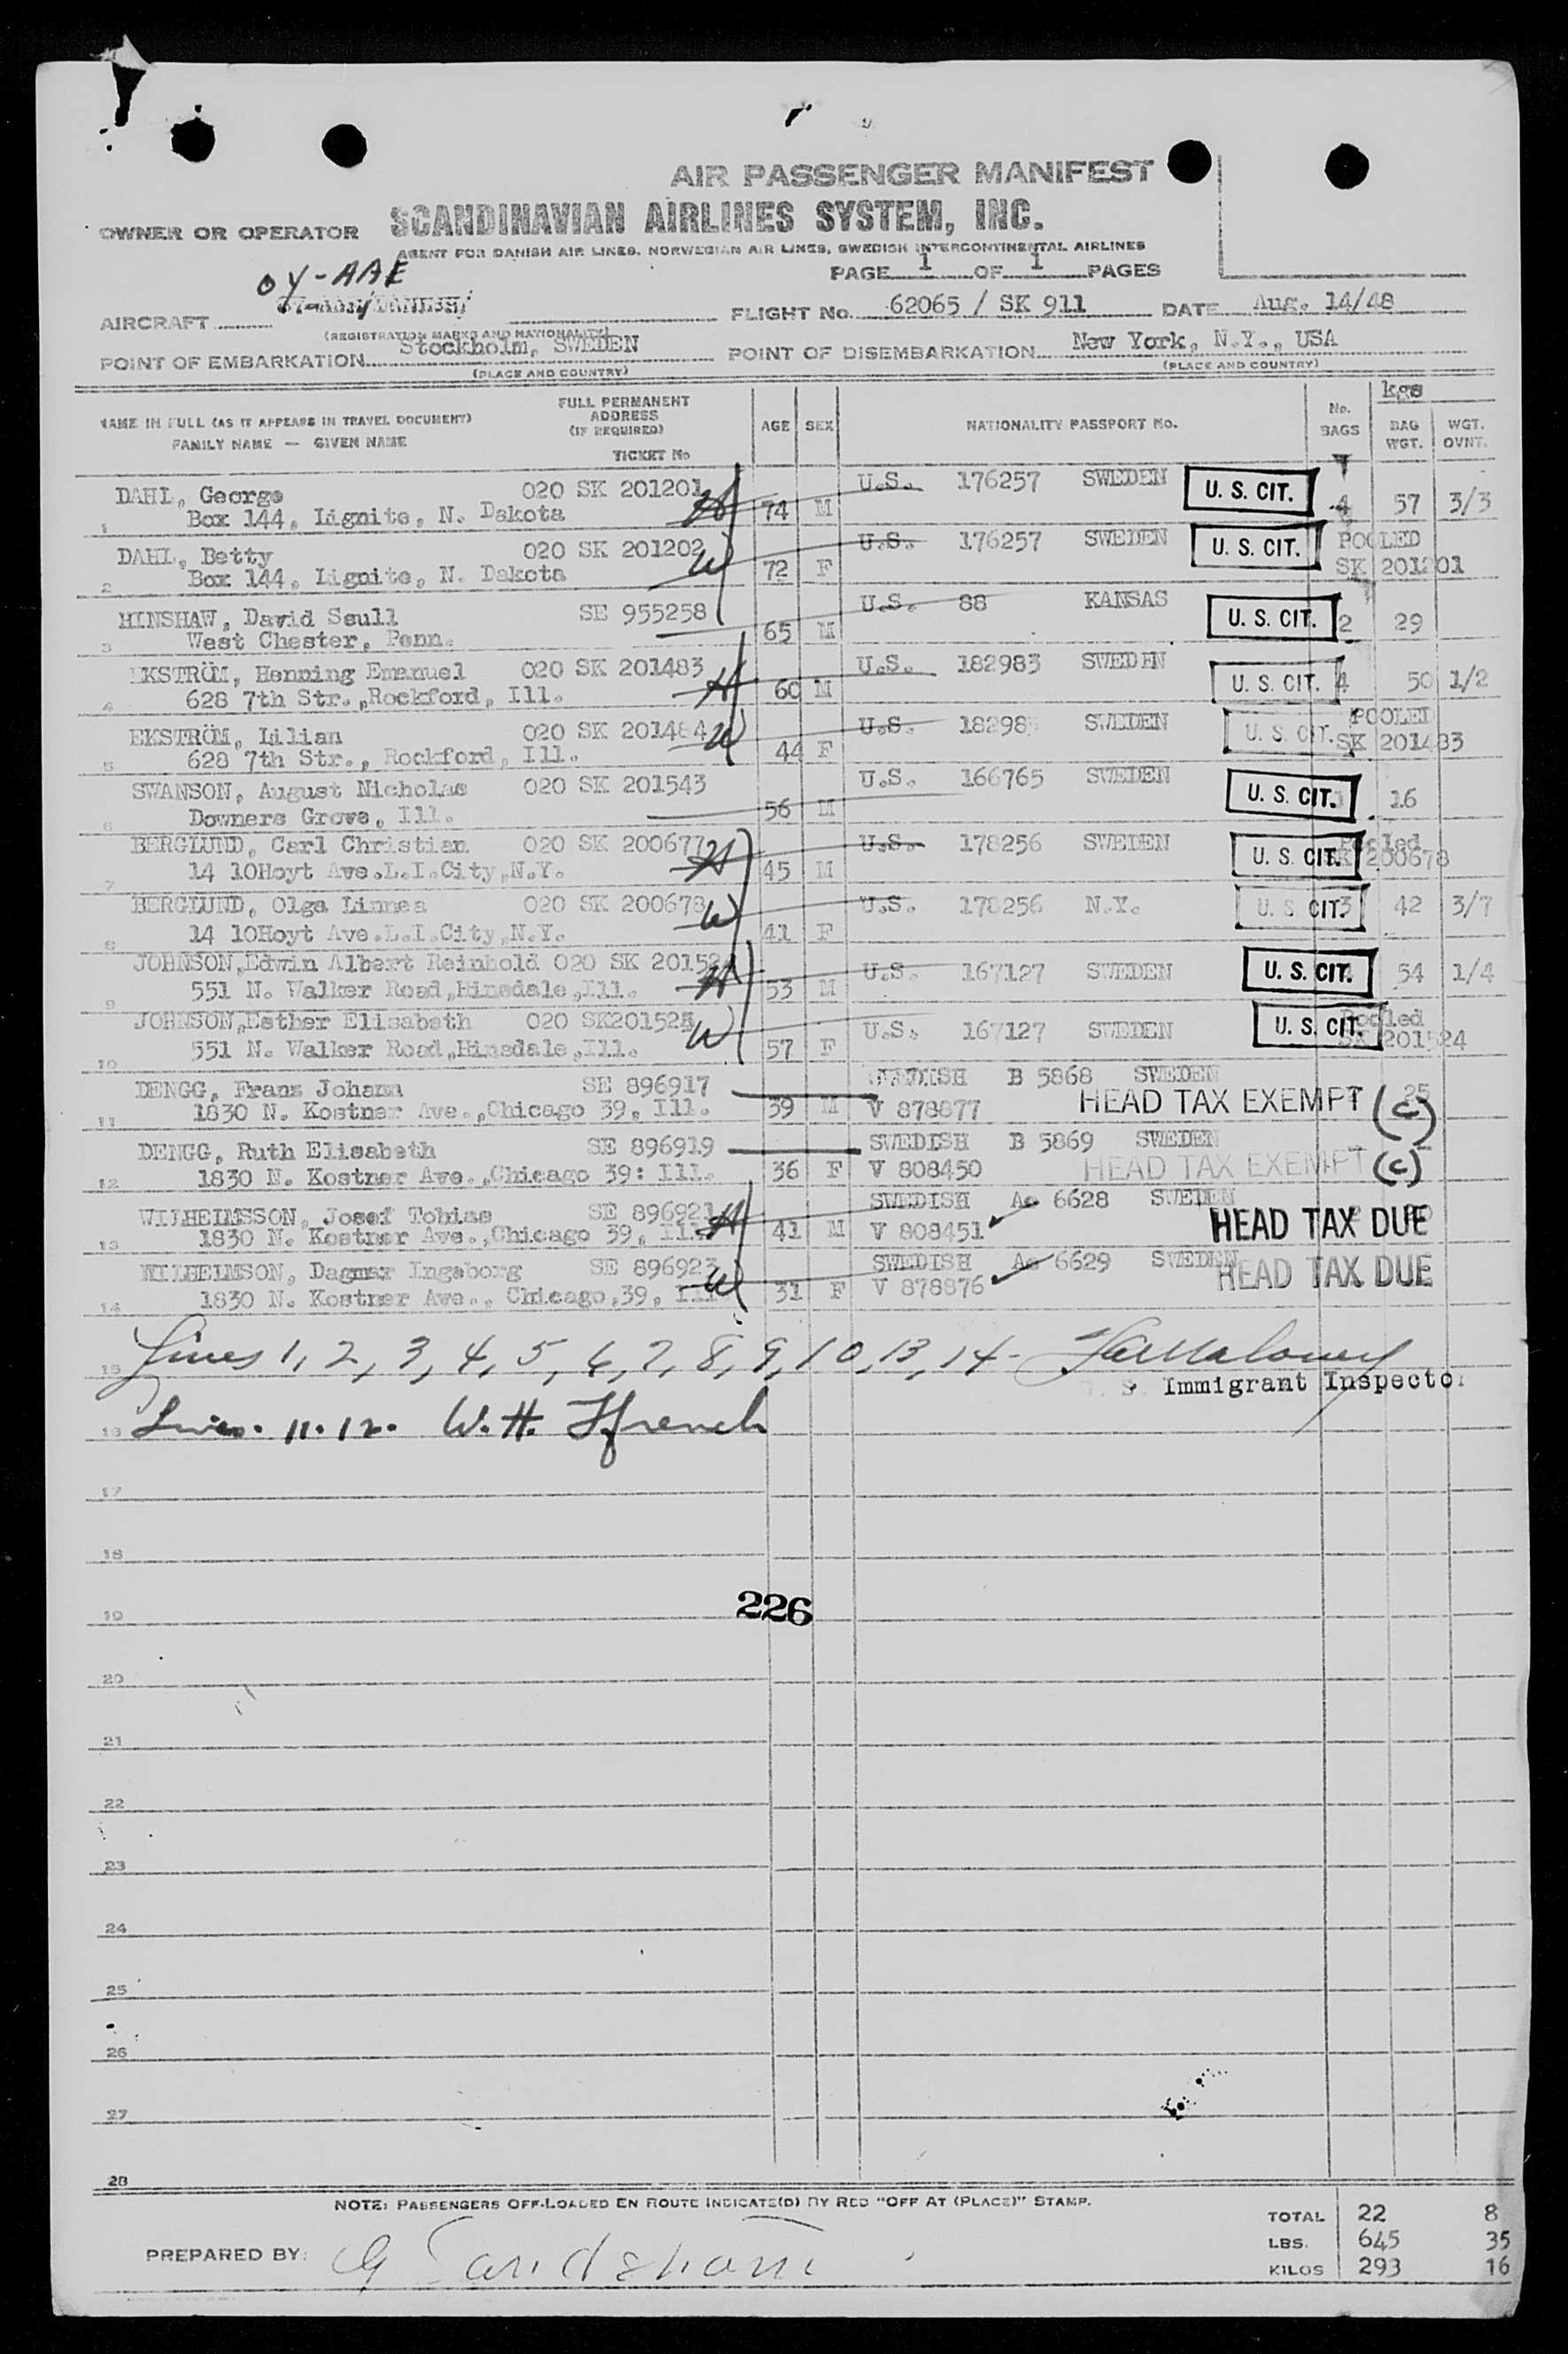 AIR PASSENGER MANIFEST
OWNER OR OPERATOR SCANDINAVIAN AIRLINES SYSTEM, INC.
AGENT FOR DANISH AIR LINES, NORWEGIAN AIR LINES, SWEDISH INTERCONTINENTAL AIRLINES
PAGE 1 OF 1 PAGES
OY-AAE
AIRCRAFT FLIGHT No. 62065 / SK 911 DATE Aug. 14/48
(REGISTRATION MARKS AND NATIONALITY)
POINT OF EMBARKATION Stockholm, SWEDEN POINT OF DISEMBARKATION New York, N.Y., USA
(PLACE AND COUNTRY) (PLACE AND COUNTRY)
kgs
NAME IN FULL (AS IT APPEARS IN TRAVEL DOCUMENT) FAMILY NAME — GIVEN NAME FULL PERMANENT ADDRESS (IF REQUIRED) TICKET No AGE SEX NATIONALITY PASSPORT No. No. BAGS BAG WGT. WGT. OVNT.
DAHL, George 020 SK 201201 H U.S. 176257 SWEDEN U. S. CIT. 4 57 3/3
1 Box 144, Lignite, N. Dakota 74 M
DAHL, Betty 020 SK 201202 W U.S. 176257 SWEDEN U. S. CIT. POOLED
2 Box 144, Lignite, N. Dakota 72 F SK 201201
HINSHAW, David Scull SE 955258 U.S. 88 KANSAS U. S. CIT. 2 29
3 West Chester, Penn. 65 M
EKSTRÖM, Henning Emanuel 020 SK 201483 H U.S. 182983 SWEDEN U. S. CIT. 4 50 1/2
4 628 7th Str.,Rockford, Ill. 60 M
EKSTRÖM, Lilian 020 SK 201484 W U.S. SWEDEN U. S. CIT. POOLED
5 628 7th Str., Rockford, Ill. 44 F SK 201483
SWANSON, August Nicholas 020 SK 201543 U.S. 166765 SWEDEN U. S. CIT. 16
6 Downers Grove, Ill. 56 M
BERGLUND, Carl Christian 020 SK 200677 H U.S. 178256 SWEDEN U. S. CIT. Pooled
7 14 10Hoyt Ave.L.I.City,N.Y. 45 M SK 200678
BERGLUND, Olga Linnea 020 SK 200678 W U.S. 178256 N.Y. U. S. CIT. 3 42 3/7
8 14 10Hoyt Ave.L.I.City,N.Y. 41 F
JOHNSON,Edwin Albert Reinhold 020 SK 201524 H U.S. 167127 SWEDEN U. S. CIT. 54 1/4
9 551 N. Walker Road,Hinsdale,Ill. 53 M
JOHNSON,Esther Elisabeth 020 SK201525 W U.S. 167127 SWEDEN U. S. CIT. Pooled
10 551 N. Walker Road,Hinsdale,Ill. 57 F SK 201524
DENGG, Franz Johann SE 896917 SWEDISH B 5868 SWEDEN 25
11 1830 N. Kostner Ave.,Chicago 39, Ill. 39 M V 878877 HEAD TAX EXEMPT (C)
DENGG, Ruth Elisabeth SE 896919 SWEDISH B 5869 SWEDEN
12 1830 N. Kostner Ave.,Chicago 39: Ill. 36 F V 808450 HEAD TAX EXEMPT (C)
WILHELMSSON, Josef Tobias SE 896921 H SWEDISH Ac 6628 SWEDEN
13 1830 N. Kostner Ave.,Chicago 39, Ill. 41 M V 808451 HEAD TAX DUE
WILHELMSON, Dagmar Ingeborg SE 896923 W SWEDISH Ac 6629 SWEDEN
14 1830 N. Kostner Ave., Chicago,39, Ill 31 F V 878876 HEAD TAX DUE
15 Lines 1, 2, 3, 4, 5, 6, 7, 8, 9, 10, 13, 14 -
U. S. Immigrant Inspector
16 Lines. 11. 12. W. H. Ffrench
17
18
19 226
20
21
22
23
24
25
26
27
28
NOTE: PASSENGERS OFF-LOADED EN ROUTE INDICATE(D) BY RED "OFF AT (PLACE)" STAMP.
TOTAL 22 8
LBS. 645 35
PREPARED BY:
KILOS 293 16